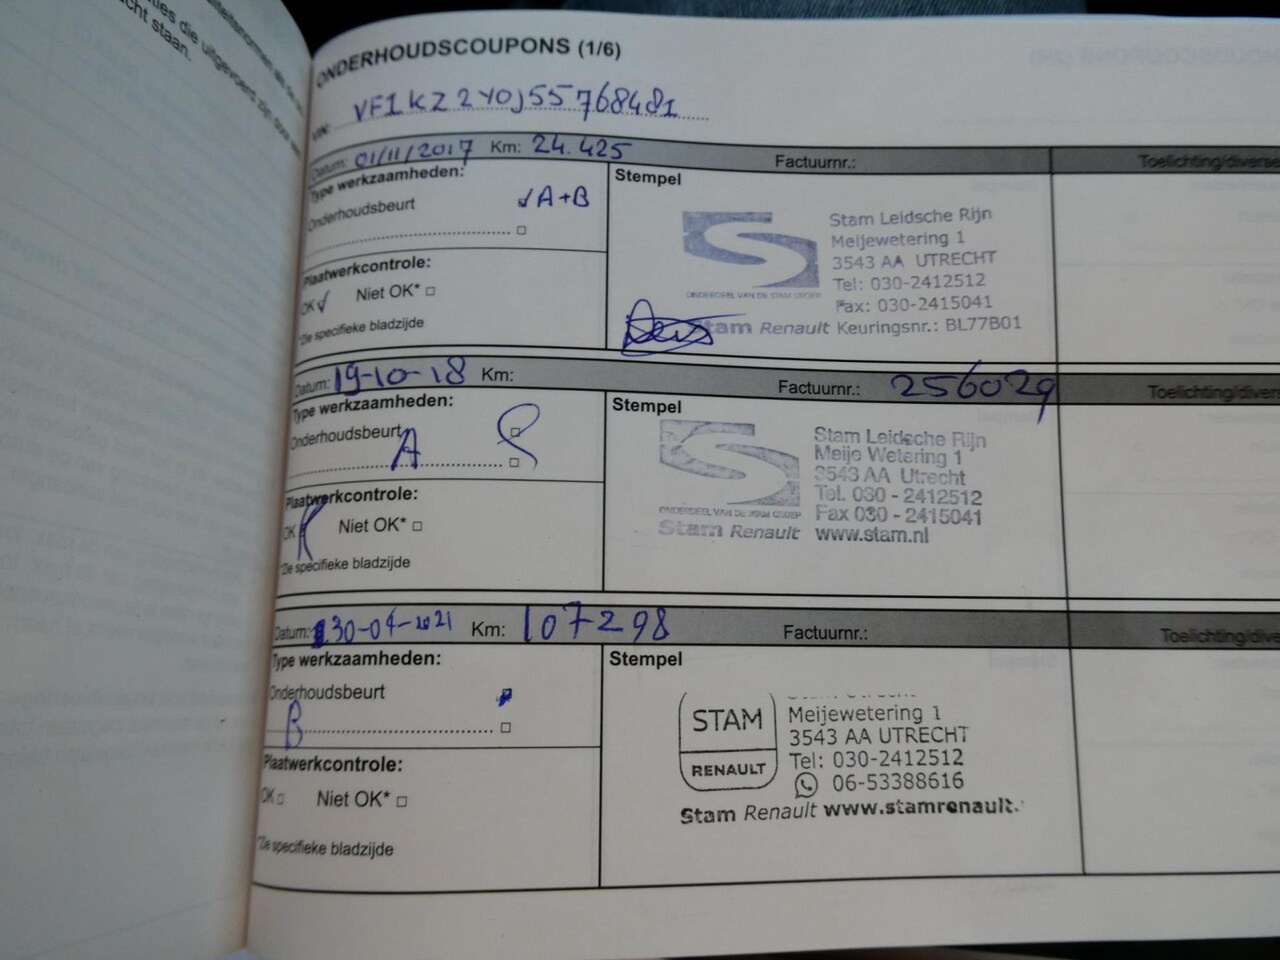 ONDERHOUDSCOUPONS (1/6)
VIN: VF1KZ2Y0J55768481
Datum: 01/11/2017 Km: 24.425 Factuurnr.: Toelichting/diverse
Type werkzaamheden:
Onderhoudsbeurt A+B
Plaatwerkcontrole:
OK Niet OK*
*Zie specifieke bladzijde
Stempel
Stam Leidsche Rijn
Meijewetering 1
3543 AA UTRECHT
Tel: 030-2412512
Fax: 030-2415041
ONDERDEEL VAN DE STAM GROEP
Stam Renault Keuringsnr.: BL77B01
Datum: 19-10-18 Km: Factuurnr.: 256029 Toelichting/diverse
Type werkzaamheden:
Onderhoudsbeurt
A
Plaatwerkcontrole:
OK Niet OK*
*Zie specifieke bladzijde
Stempel
Stam Leidsche Rijn
Meije Wetering 1
3543 AA Utrecht
Tel. 030 - 2412512
Fax 030 - 2415041
ONDERDEEL VAN DE STAM GROEP
Stam Renault www.stam.nl
Datum: 30-04-2021 Km: 107298 Factuurnr.: Toelichting/diverse
Type werkzaamheden:
Onderhoudsbeurt
B
Plaatwerkcontrole:
OK Niet OK*
*Zie specifieke bladzijde
Stempel
STAM
RENAULT
Meijewetering 1
3543 AA UTRECHT
Tel: 030-2412512
06-53388616
Stam Renault www.stamrenault.